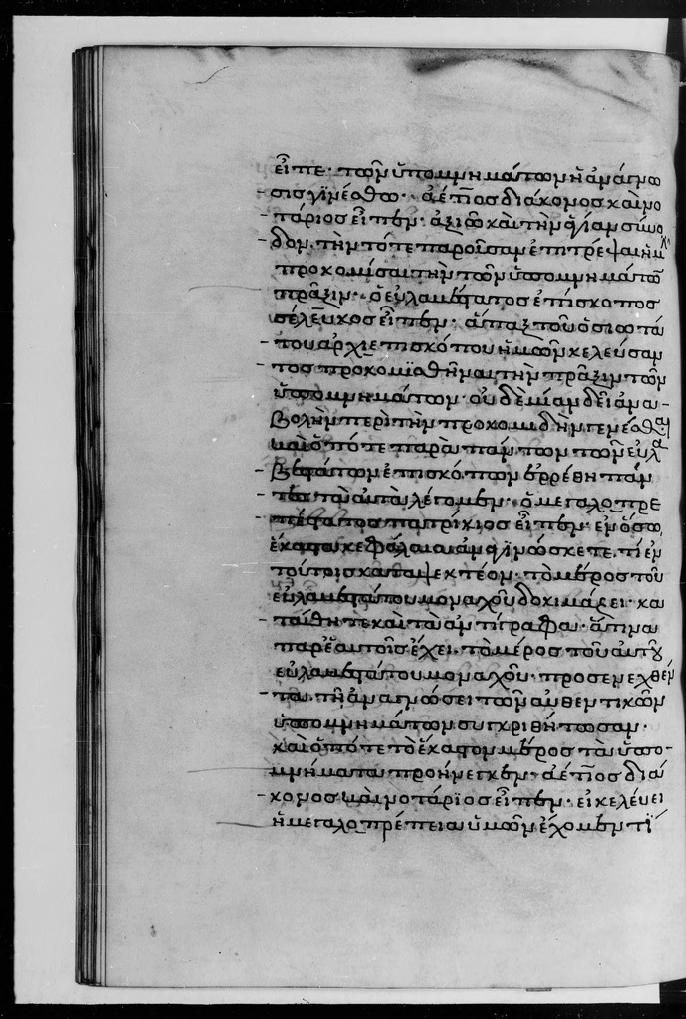 εἶπε· τῶν ὑπομνημάτων ἡ ἀνάγνω
σις γϊνέσθω· ἀέτϊος διάκονος καὶ νο
τάριος εἶπεν· ἀξιῶ καὶ τὴν ἁγίαν σύνο
δον. τὴν τότε παροῦσαν ἐπιτρέψαι ἡμῖν
προκομίσαι τὴν τῶν ὑπομνημάτων
πρᾶξιν· ὁ εὐλαβέστατος ἐπίσκοπος
σέλευκος εἶπεν· ἅπαξ τοῦ ὁσιωτά
του ἀρχιεπισκόπου ἡμῶν κελεύσαν
τος προκομϊσθῆναι τὴν πρᾶξιν τῶν
ὑπομνημάτων. οὐδεμίαν δεῖ ἀνα-
βολὴν περὶ τὴν προκομιδὴν γενέσθαι
καὶ ὁπότε παρὰ πάντων τῶν εὐλα
βεστάτων ἐπισκόπων ἐρρέθη πάν
τα τὰ αὐτὰ λέγομεν· ὁ μεγαλοπρε
πέστατος πατρίκιος εἶπεν· ἐν ὅσω
ἕκαστα κεφάλαια ἀναγϊνώσκετε. τί ἐν
τούτοις καταψεκτέον. τὸ μέρος τοῦ
εὐλαβεστάτου μοναχοῦ δοκιμάσει· κα
ταίθητε καὶ τὰ ἀντίγραφα· ἅτινα
παρ' ἑαυτοῖς ἔχει. τὸ μέρος τοῦ αὐτοῦ
εὐλαβεστάτου μοναχοῦ· προσενεχθέν
τα. τῆ ἀναγνώσει τῶν αὐθεντικῶν
ὑπομνημάτων συγκριθήτωσαν·
καὶ ὁπότε τὸ ἕκαστον μέρος τὰ ὑπο-
μνήματα προήνεγκεν· ἀέτϊος διά
κονος καὶ νοτάρϊος εἶπεν· εἰ κελεύει
ἡ μεγαλοπρέπεια ὑμῶν ἔχομέν τϊ